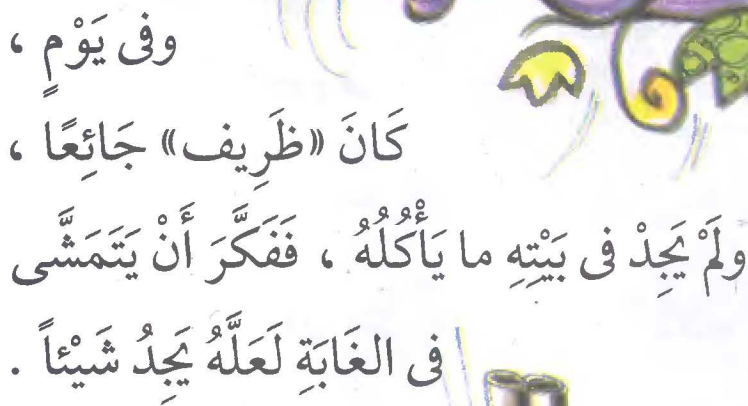 وفى يَوْمٍ ،
كَانَ «ظَرِيف» جَائِعًا ،
ولَمْ يَجِدْ فى بَيْتِهِ ما يَأْكُلُهُ ، فَفَكَّرَ أَنْ يَتَمَشَّى
فى الغَابَةِ لَعَلَّهُ يَجِدُ شَيْئاً .